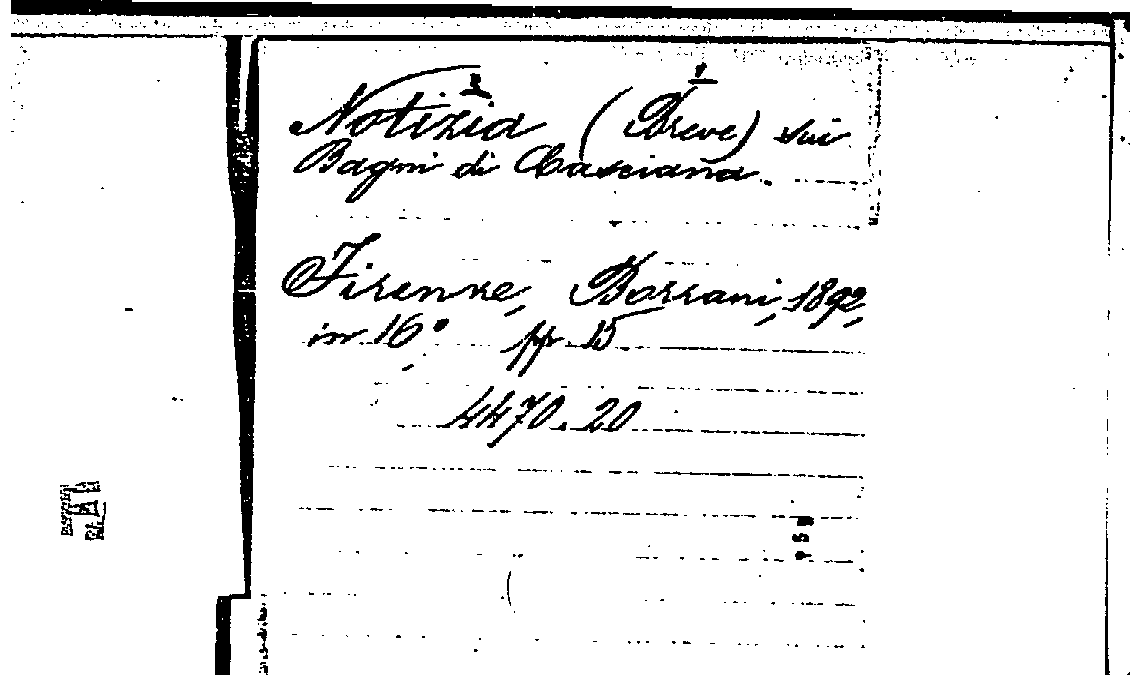 Notizia (Breve) sui
Bagni di Casciana.
Firenze, Borrani, 1892,
in 16°, pp. 15
4470.20